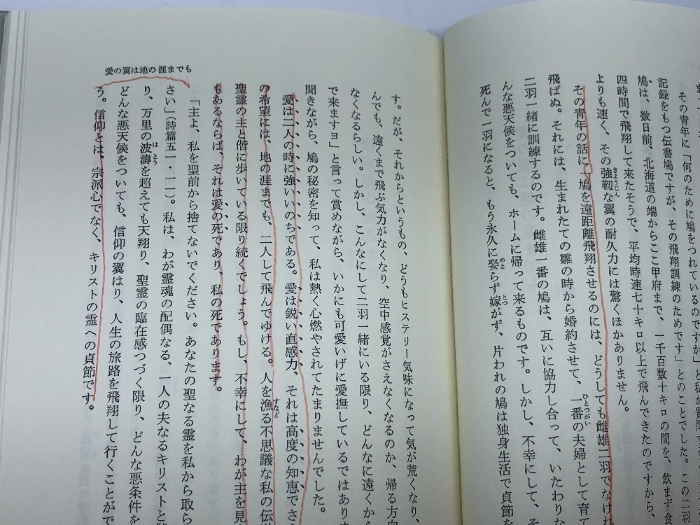 その青年に「何のために鳩をつれているのですか」と
記録をもつ伝書鳩ですが、その飛翔訓練のためです」とのことでした。この二羽
鳩は、数日前、北海道の端からここ甲府まで、一千百数十キロの間を、飲まず食
四時間で飛翔して来たそうで、平均時速七十キロ以上で飛んできたのですから、
よりも速く、その強靭な翼の耐久力には驚くほかありません。
その青年の話に「鳩を遠距離飛翔させるのには、どうしても雌雄二羽でなけ
飛ばぬ。それには、生まれたての雛の時から婚約させて、一番の夫婦として育て
二羽一緒に訓練するのです。雌雄一番の鳩は、互いに協力し合って、いたわりな
んな悪天候をついても、ホームに帰って来るものです。しかし、不幸にして、そ
死んで一羽になると、もう永久に娶らず嫁がず、片われの鳩は独身生活で貞節を
愛の翼は地の涯までも
す。だが、それからというもの、どうもヒステリー気味になって気が荒くなり、
んでも、遠くまで飛ぶ気力がなくなり、空中感覚がさえなくなるのか、帰る方向
なくなるらしい。しかし、こんなにして二羽一緒にいる限り、どんなに遠くから
で来ますヨ」と言って賞めながら、いかにも可愛いげに愛撫しているではありま
聞きながら、鳩の秘密を知って、私は熱く心燃やされてたまりませんでした。
愛は二人の時に強いいのちである。愛は鋭い直感力、それは高度の知恵でさ
の希望には、地の涯までも、二人して飛んでゆける。人を漁る不思議な私の伝
聖霊の主と偕に歩いている限り続くでしょう。もし、不幸にして、わが主を見
もあるならば、それは愛の死であり、私の死であります。
「主よ、私を聖前から捨てないでください。あなたの聖なる霊を私から取ら
さい」（詩篇五一・一一）。私は、わが霊魂の配偶なる、一人の夫なるキリストと
り、万里の波濤を超えても天翔り、聖霊の臨在感つづく限り、どんな悪条件を
どんな悪天候をついても、信仰の翼はり、人生の旅路を飛翔して行くことがで
う。信仰とは、宗派心でなく、キリストの霊への貞節です。